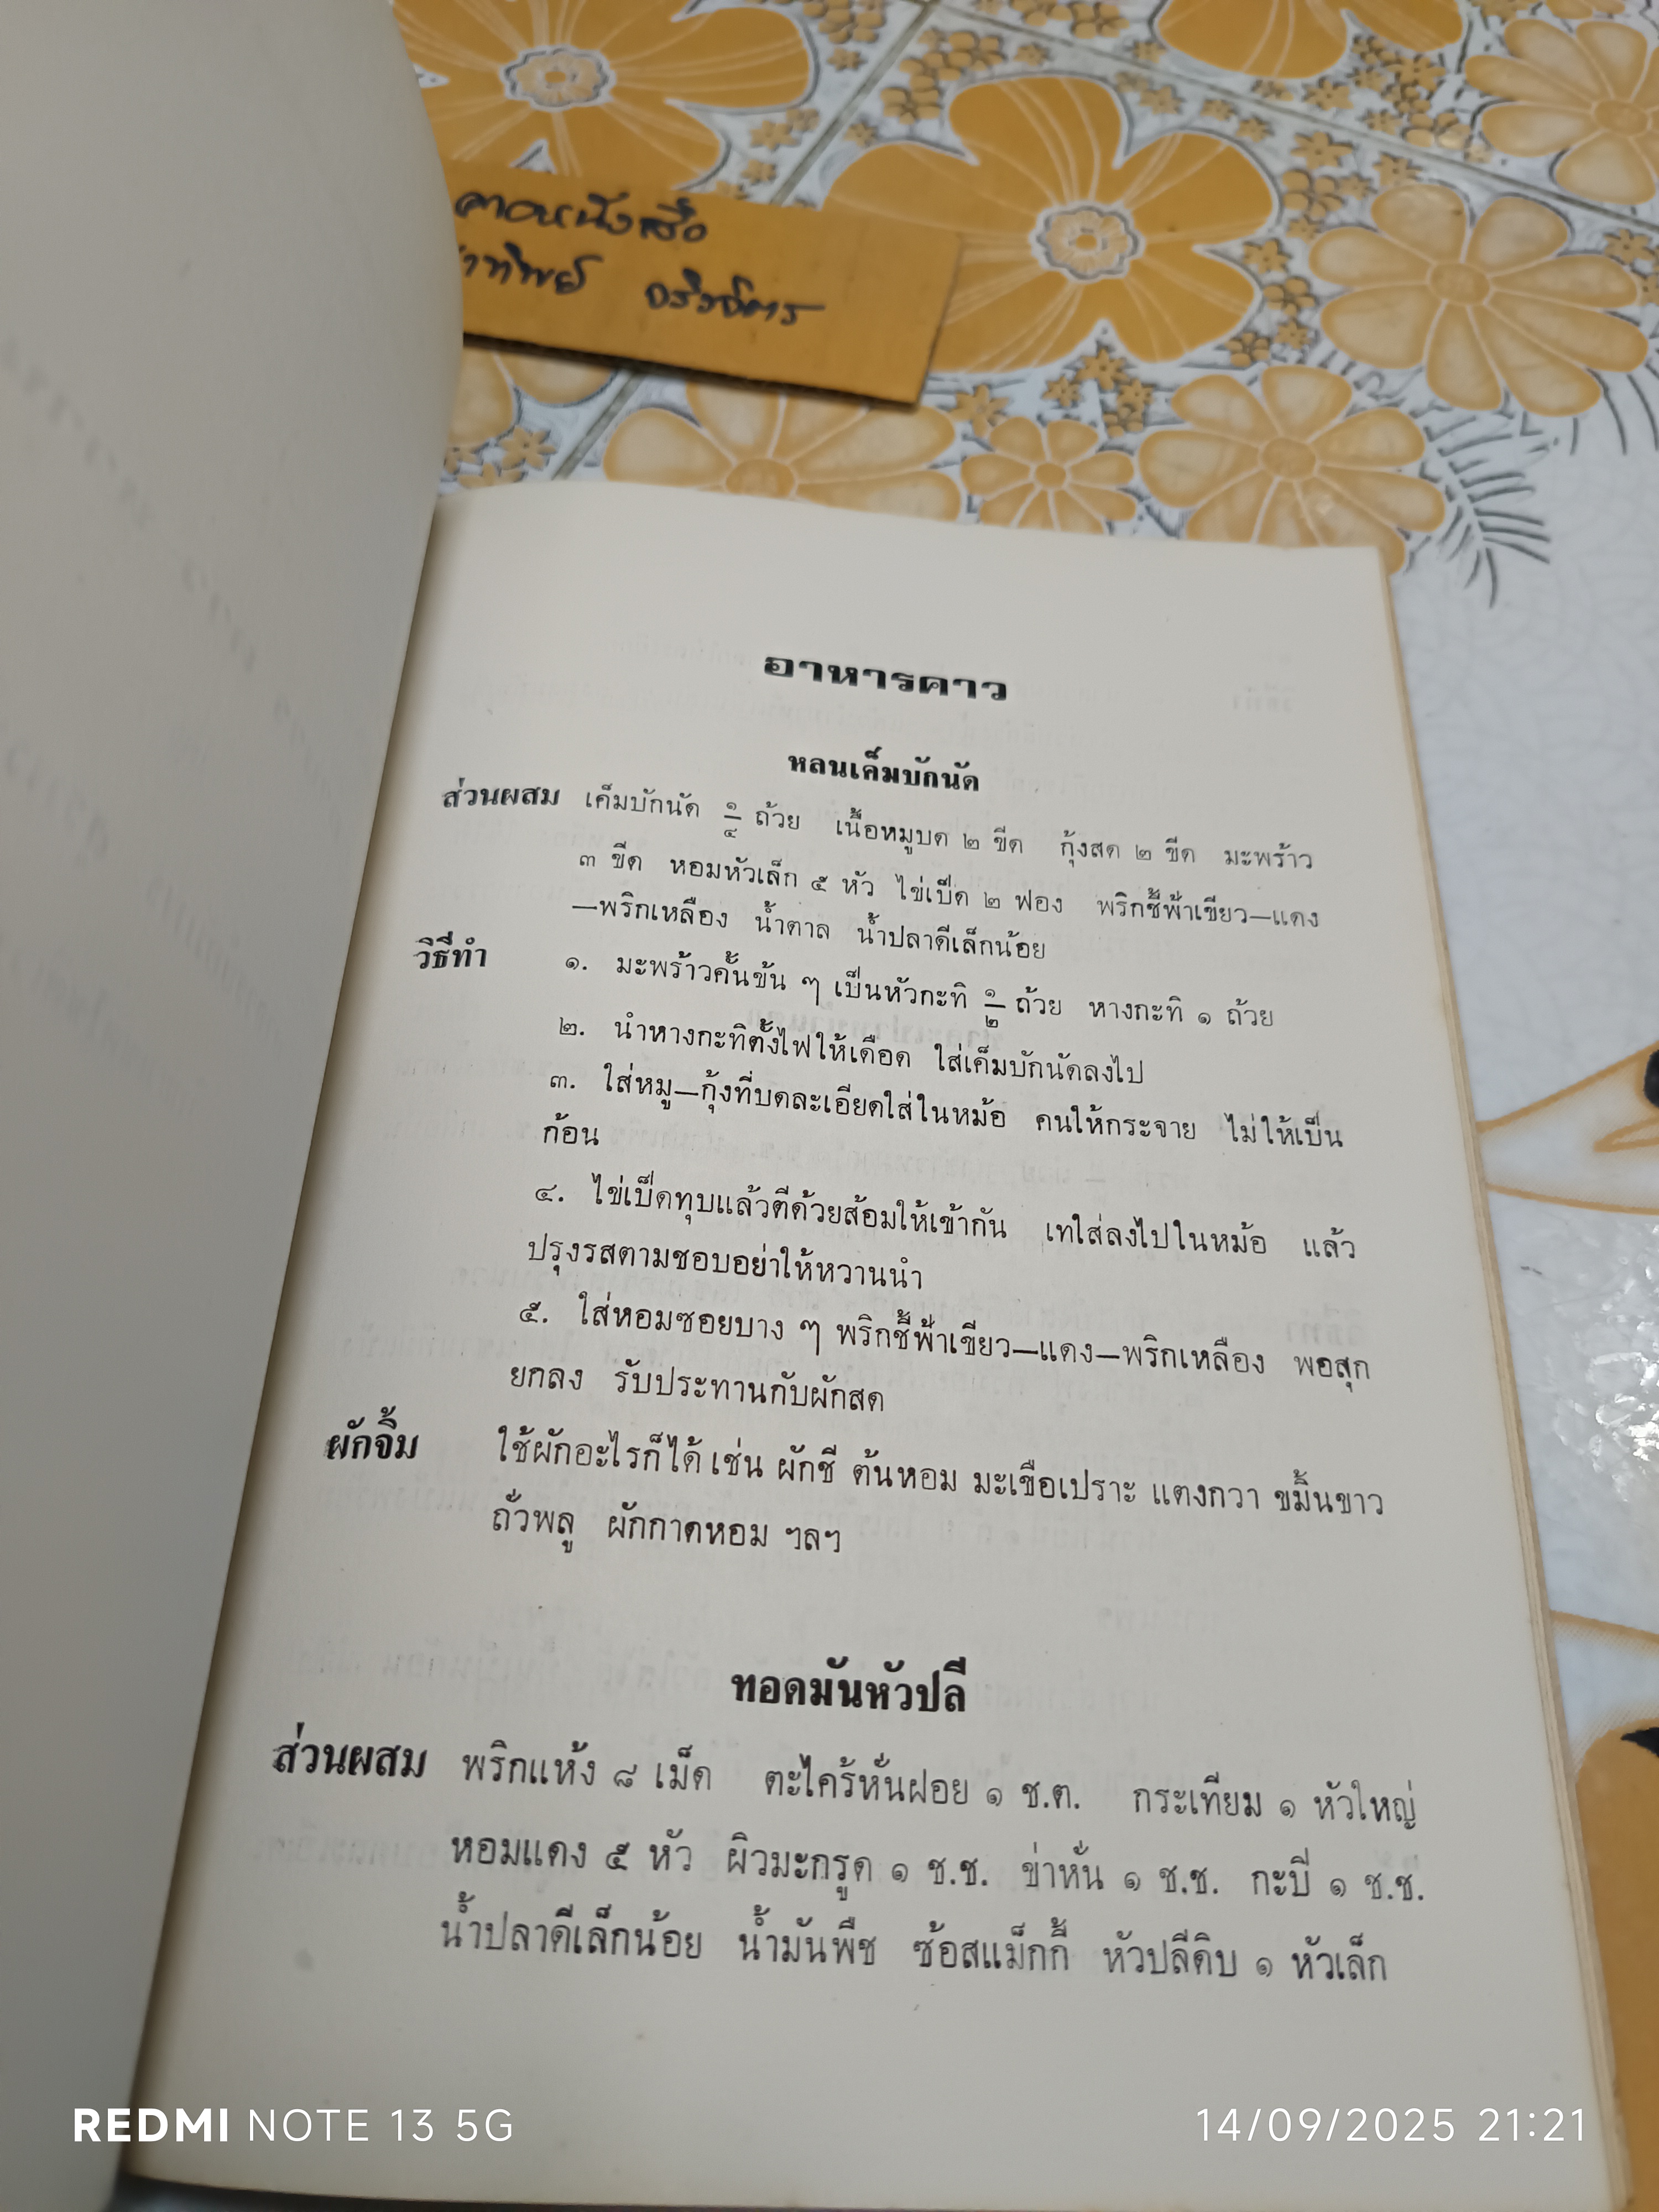 ตาดหนังสือ
อาหารคาว
หลนเค็มบักนัด
ส่วนผสม เค็มบักนัด ๑/๔ ถ้วย เนื้อหมูบด ๒ ขีด กุ้งสด ๒ ขีด มะพร้าว
๓ ขีด หอมหัวเล็ก ๕ หัว ไข่เป็ด ๒ ฟอง พริกชี้ฟ้าเขียว—แดง
—พริกเหลือง น้ำตาล น้ำปลาดีเล็กน้อย
วิธีทำ ๑. มะพร้าวคั้นข้น ๆ เป็นหัวกะทิ ๑/๒ ถ้วย หางกะทิ ๑ ถ้วย
๒. นำหางกะทิตั้งไฟให้เดือด ใส่เค็มบักนัดลงไป
๓. ใส่หมู—กุ้งที่บดละเอียดใส่ในหม้อ คนให้กระจาย ไม่ให้เป็น
ก้อน
๔. ไข่เป็ดทุบแล้วตีด้วยส้อมให้เข้ากัน เทใส่ลงไปในหม้อ แล้ว
ปรุงรสตามชอบอย่าให้หวานนำ
๕. ใส่หอมซอยบาง ๆ พริกชี้ฟ้าเขียว—แดง—พริกเหลือง พอสุก
ยกลง รับประทานกับผักสด
ผักจิ้ม ใช้ผักอะไรก็ได้ เช่น ผักชี ต้นหอม มะเขือเปราะ แตงกวา ขมิ้นขาว
ถั่วพลู ผักกาดหอม ฯลฯ
ทอดมันหัวปลี
ส่วนผสม พริกแห้ง ๘ เม็ด ตะไคร้หั่นฝอย ๑ ช.ต. กระเทียม ๑ หัวใหญ่
หอมแดง ๕ หัว ผิวมะกรูด ๑ ช.ช. ข่าหั่น ๑ ช.ช. กะปี ๑ ช.ช.
น้ำปลาดีเล็กน้อย น้ำมันพืช ซ้อสแม็กกี้ หัวปลีดิบ ๑ หัวเล็ก
REDMI NOTE 13 5G
14/09/2025 21:21